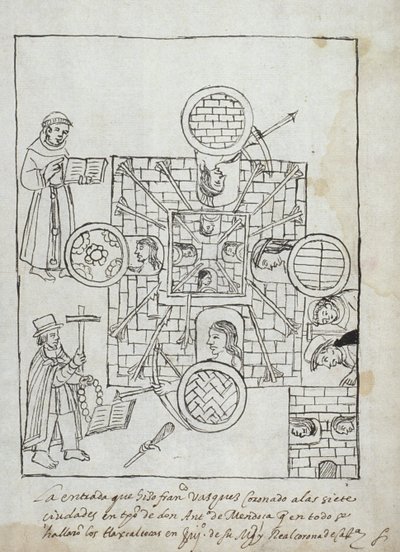 La entrada que hiso fran.co Vasques Coronado a las siete
ciudades en tpo. de don Ant.o de Mendoca q en todo se
hallaro los tlaxcaltecas en de su Mg.d y Real corona de